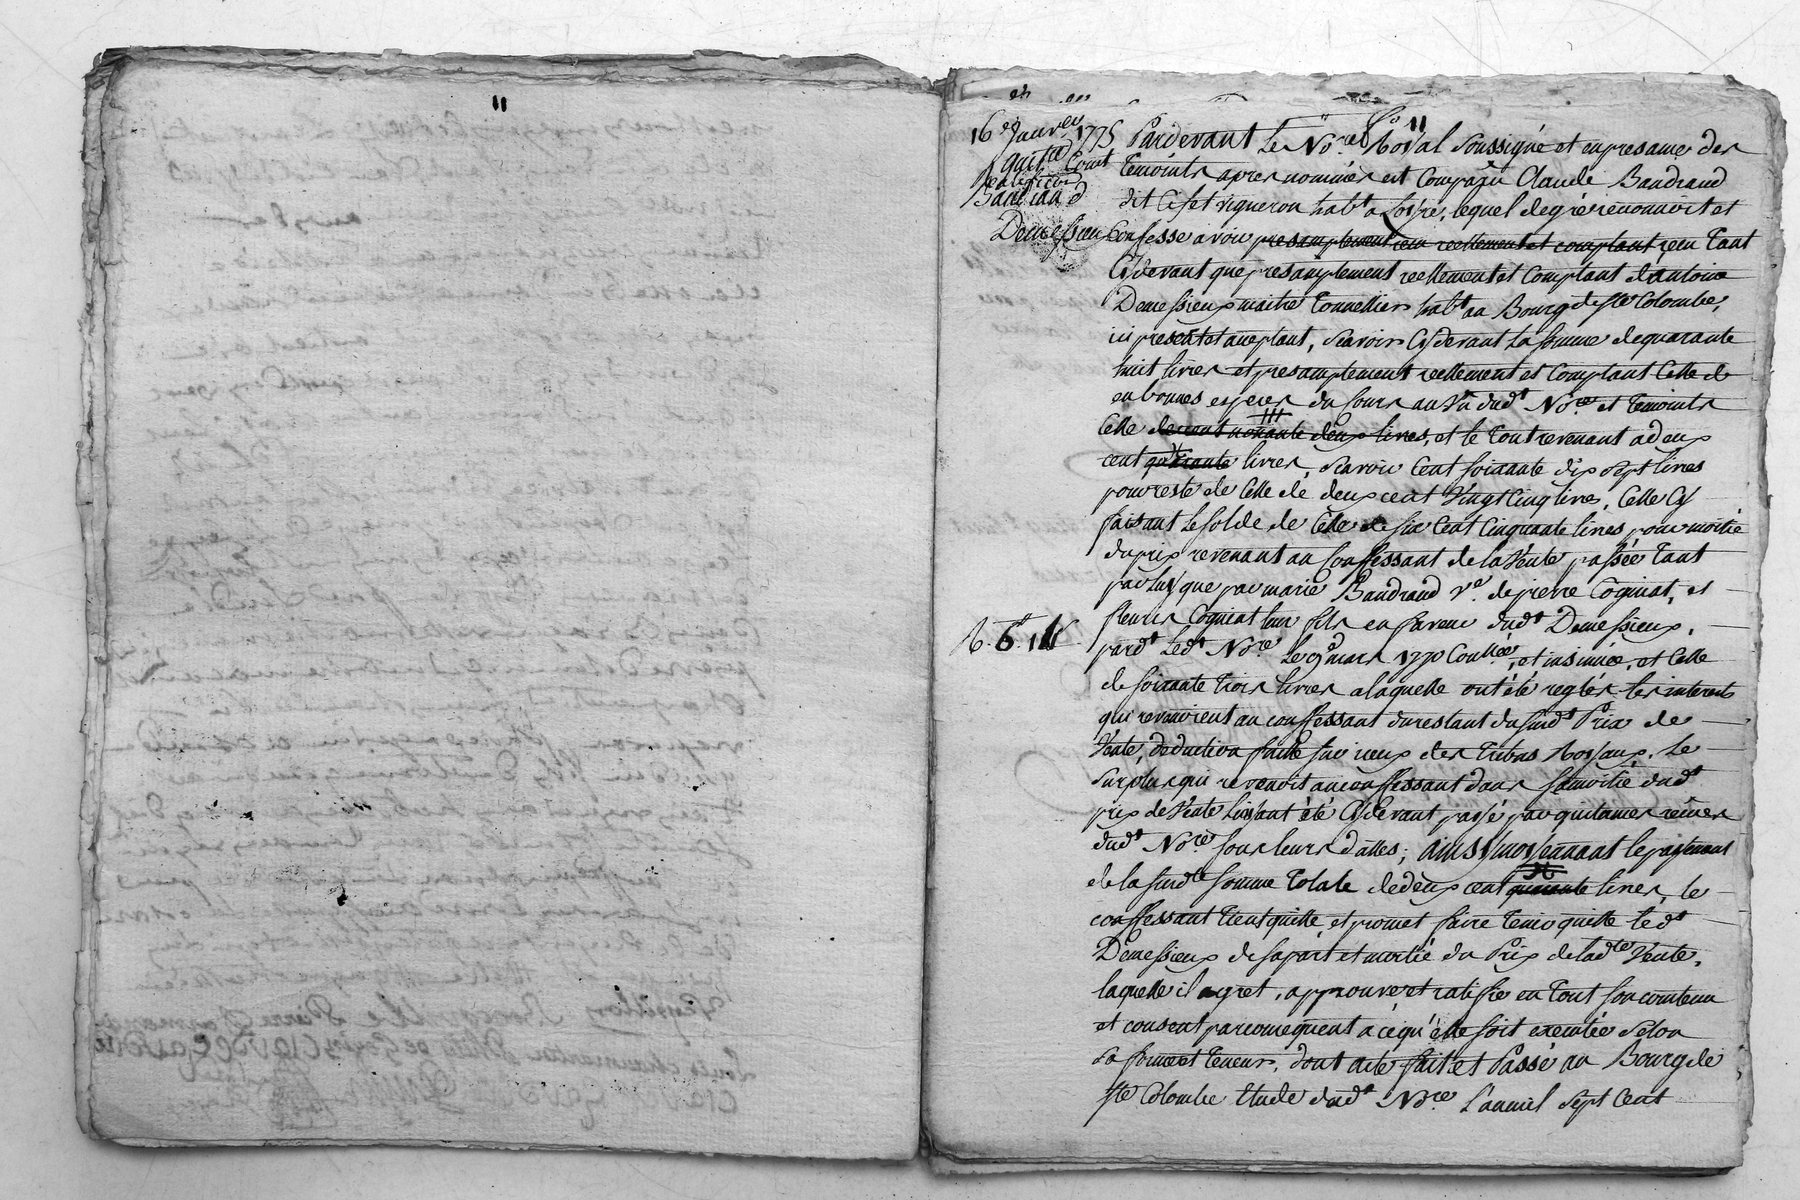 11
fo 11
16e Janvier 1775
quittce
Baudrand
Demessieux
Pardevant Le Nore Royal soussigné et en presance des
temoints apres nommés est Comparu Claude Baudrand
dit Ciset vigneron habt a Loire, lequel de gré reconnoit et
Confesse avoir presamptement reeu reellement et comptant reçu tant
Cy devant que presamptement reellement et Comptant d'antoine
Demessieux maitre tonnellier habt au Bourg de Ste Colombe,
ici present et aceptant, scavoir Cy devant La somme de quarante
huit livres et presamptement reellement et Comptant Celle de
en bonnes especes du Cours au vu dudt Nore et temoints
Celle de cent nonante deux livres, et le tout revenant a deux
cent quarante livres, scavoir Cent soixante dix sept livres
pour reste de Celle de deux cent vingt Cinq livres, Celle Cy
faisant Le solde de Celle de six Cent Cinquante livres pour moitié
du prix revenant au Confessant de la vente passée tant
par Luy que par marie Baudrand ve. de pierre Cognat, et
fleury Cognat leur fils en faveur dudt Demessieux,
pardt Ledt Nore Le 9e mars 1770 Conllée, et insinuée, et Celle
de soixante trois livres a laquelle ont été reglés les interets
qui revenoient au confessant du restant du susdt Prix de
vente, deduction faitte sur iceux des tributs Royaux. Le
surplus qui revenoit au confessant dans sa moitié dudt
prix de vente Luy ayant été Cy devant payé par quitances reçues
dudt Nore sous leurs dattes; ainsy moyennant le payement
de la susdte somme totale de deux cent quarante livres, le
confessant tient quitte, et promet faire tenir quitte ledt
Demessieux de sa part et moitié du Prix de ladte vente,
laquelle il agret, approuve et ratiffie en tout son contenu
et consent par consequent a ce qu'elle soit executée selon
sa forme et teneur, dont acte fait et Passé au Bourg de
Ste Colombe Etude dudt Nore L'an mil sept Cent